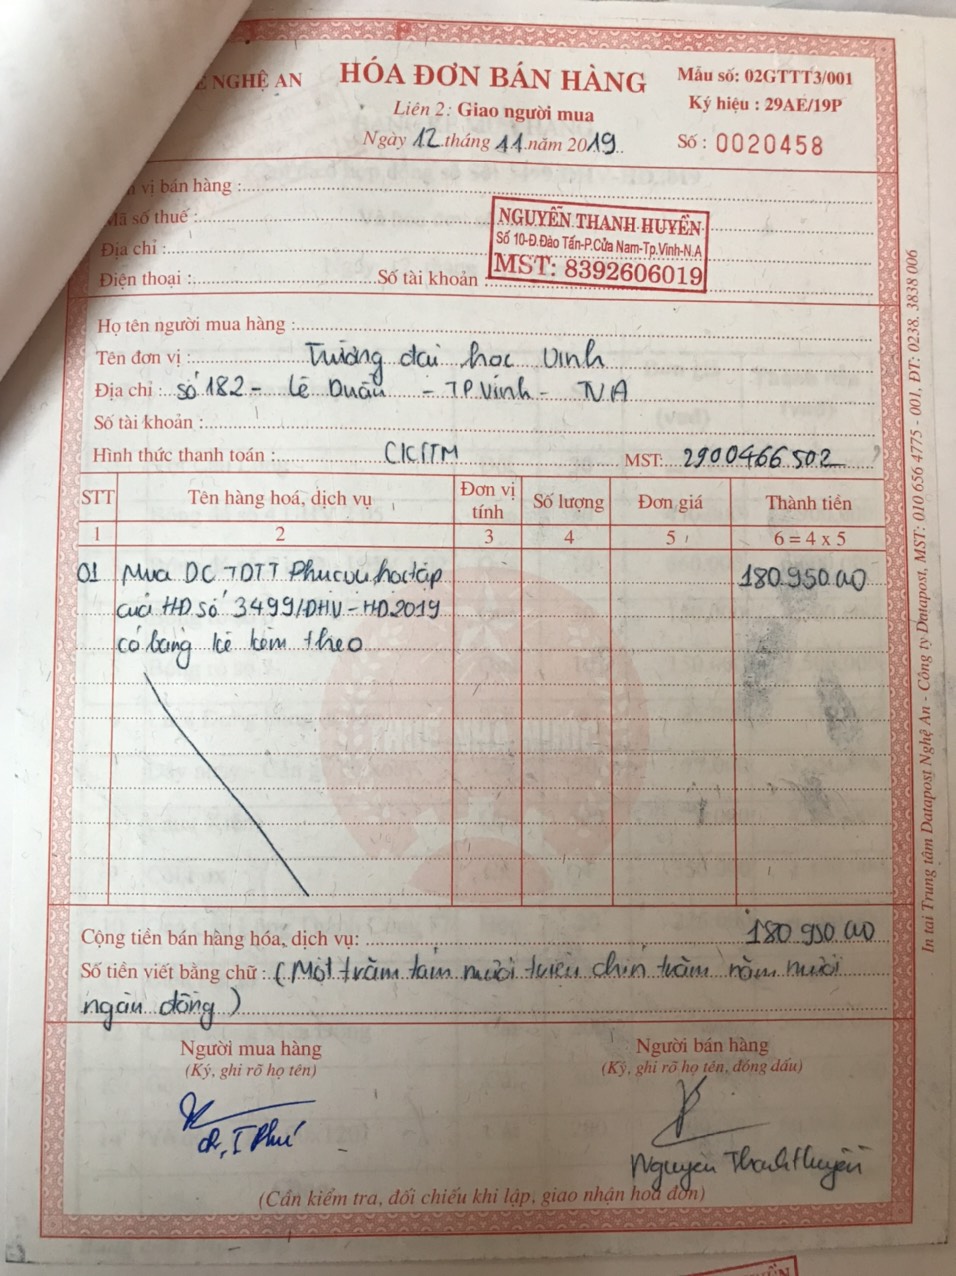 NGHỆ AN
HÓA ĐƠN BÁN HÀNG
Mẫu số: 02GTTT3/001
Liên 2: Giao người mua
Ký hiệu : 29AE/19P
Ngày 12 tháng 11 năm 2019
Số : 0020458
vị bán hàng :
Mã số thuế :
Địa chỉ :
Điện thoại : Số tài khoản :
NGUYỄN THANH HUYỀN
Số 10-Đ.Đào Tấn-P.Cửa Nam-Tp.Vinh-N.A
MST: 8392606019
Họ tên người mua hàng :
Tên đơn vị : Trường đại học Vinh
Địa chỉ : số 182 - Lê Duẩn - TP Vinh - NA
Số tài khoản :
Hình thức thanh toán : CK/TM MST: 2900466502
STT Tên hàng hoá, dịch vụ Đơn vị tính Số lượng Đơn giá Thành tiền
1 2 3 4 5 6 = 4 x 5
01 Mua DC TDTT Phục vụ học tập 180.950.000
của HĐ số 3499/ĐHV-HĐ.2019
có bảng kê kèm theo
Cộng tiền bán hàng hóa, dịch vụ: 180.950.000
Số tiền viết bằng chữ : (Một trăm tám mươi triệu chín trăm năm mươi
ngàn đồng)
Người mua hàng
Người bán hàng
(Ký, ghi rõ họ tên)
(Ký, ghi rõ họ tên, đóng dấu)
Nguyễn Thanh Huyền
(Cần kiểm tra, đối chiếu khi lập, giao nhận hoá đơn)
In tại Trung tâm Datapost Nghệ An - Công ty Datapost, MST: 010 656 4775 - 001, ĐT: 0238, 3838 006